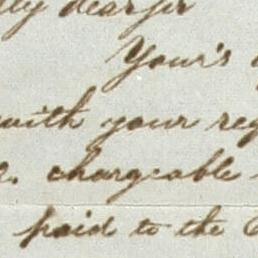 My dear Sir
Your's
with your reg
e. chargeable
paid to the C